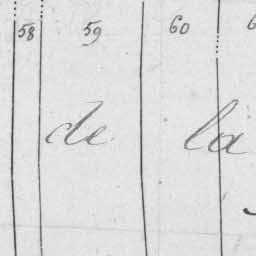 58 59 60
de la